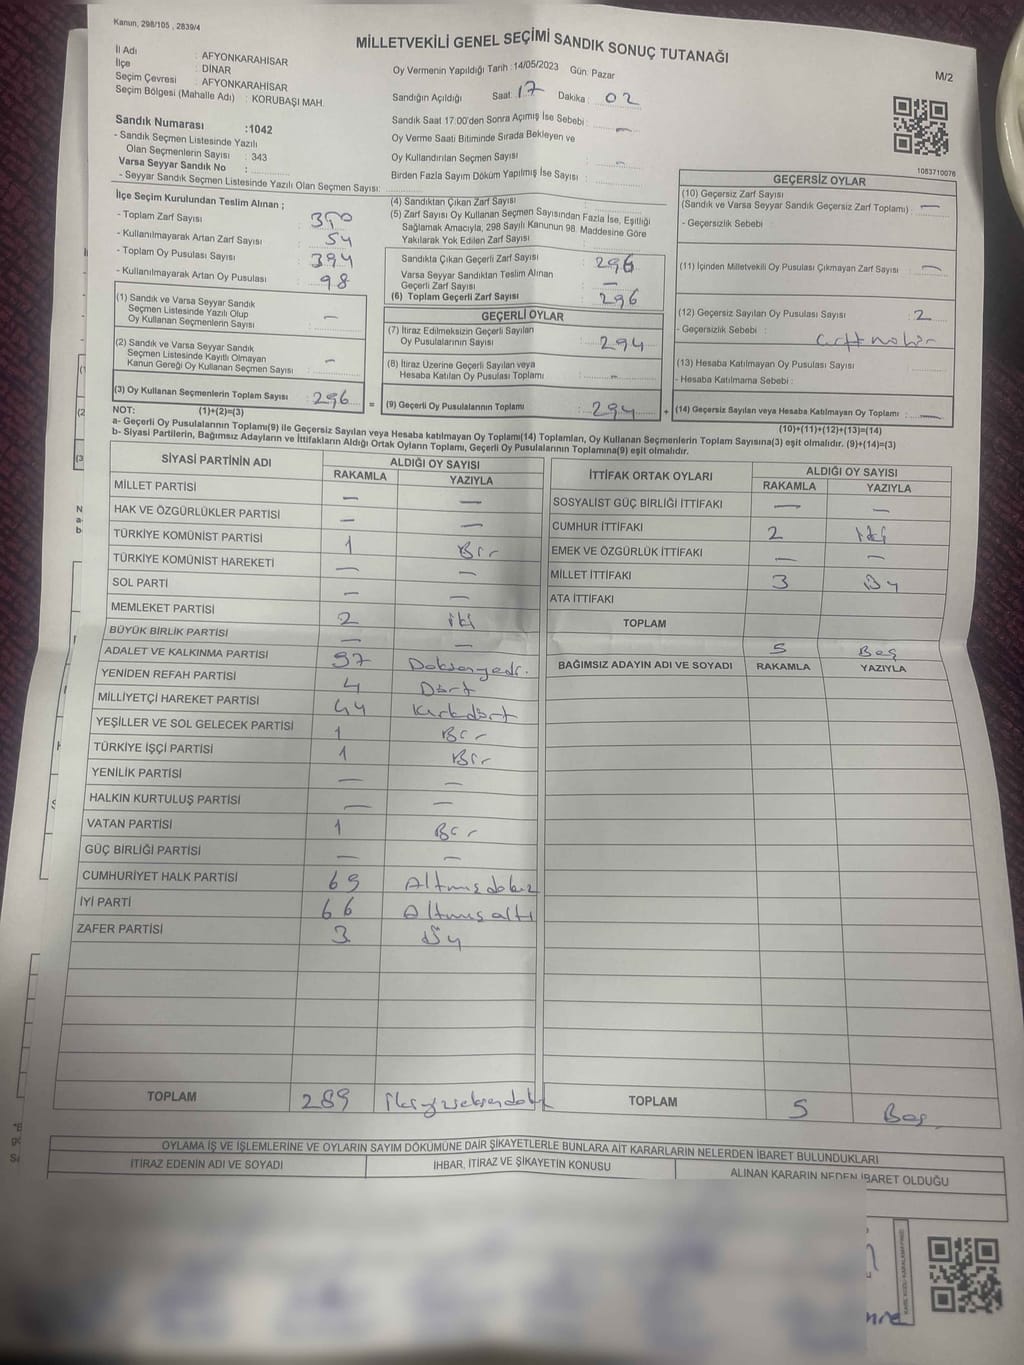 Kanun, 298/105 , 2839/4
MİLLETVEKİLİ GENEL SEÇİMİ SANDIK SONUÇ TUTANAĞI
M/2
İl Adı : AFYONKARAHİSAR
İlçe : DİNAR
Seçim Çevresi : AFYONKARAHİSAR
Seçim Bölgesi (Mahalle Adı) : KORUBAŞI MAH.
Sandık Numarası :1042
- Sandık Seçmen Listesinde Yazılı
Olan Seçmenlerin Sayısı : 343
Varsa Seyyar Sandık No :
- Seyyar Sandık Seçmen Listesinde Yazılı Olan Seçmen Sayısı:
Oy Vermenin Yapıldığı Tarih :14/05/2023 Gün: Pazar
Sandığın Açıldığı Saat: 17 Dakika : 02
Sandık Saat 17:00'den Sonra Açımış İse Sebebi : —
Oy Verme Saati Bitiminde Sırada Bekleyen ve
Oy Kullandırılan Seçmen Sayısı : —
Birden Fazla Sayım Döküm Yapılmış İse Sayısı :
1083710076
İlçe Seçim Kurulundan Teslim Alınan ;
- Toplam Zarf Sayısı : 350
- Kullanılmayarak Artan Zarf Sayısı : 54
- Toplam Oy Pusulası Sayısı : 394
- Kullanılmayarak Artan Oy Pusulası : 98
(1) Sandık ve Varsa Seyyar Sandık
Seçmen Listesinde Yazılı Olup
Oy Kullanan Seçmenlerin Sayısı : —
(2) Sandık ve Varsa Seyyar Sandık
Seçmen Listesinde Kayıtlı Olmayan
Kanun Gereği Oy Kullanan Seçmen Sayısı : —
(3) Oy Kullanan Seçmenlerin Toplam Sayısı : 296
(4) Sandıktan Çıkan Zarf Sayısı :
(5) Zarf Sayısı Oy Kullanan Seçmen Sayısından Fazla İse, Eşitliği
Sağlamak Amacıyla, 298 Sayılı Kanunun 98. Maddesine Göre
Yakılarak Yok Edilen Zarf Sayısı :
Sandıkta Çıkan Geçerli Zarf Sayısı : 296
Varsa Seyyar Sandıktan Teslim Alınan
Geçerli Zarf Sayısı : —
(6) Toplam Geçerli Zarf Sayısı : 296
GEÇERLİ OYLAR
(7) İtiraz Edilmeksizin Geçerli Sayılan
Oy Pusulalarının Sayısı : 294
(8) İtiraz Üzerine Geçerli Sayılan veya
Hesaba Katılan Oy Pusulası Toplamı : —
= (9) Geçerli Oy Pusulalarının Toplamı : 294 +
GEÇERSİZ OYLAR
(10) Geçersiz Zarf Sayısı
(Sandık ve Varsa Seyyar Sandık Geçersiz Zarf Toplamı) : —
- Geçersizlik Sebebi :
(11) İçinden Milletvekili Oy Pusulası Çıkmayan Zarf Sayısı : —
(12) Geçersiz Sayılan Oy Pusulası Sayısı : 2
- Geçersizlik Sebebi :
(13) Hesaba Katılmayan Oy Pusulası Sayısı :
- Hesaba Katılmama Sebebi :
(14) Geçersiz Sayılan veya Hesaba Katılmayan Oy Toplamı : —
NOT: (1)+(2)=(3)
(10)+(11)+(12)+(13)=(14)
a- Geçerli Oy Pusulaları Toplamı(9) ile Geçersiz Sayılan veya Hesaba katılmayan Oy Toplamı(14) Toplamları, Oy Kullanan Seçmenlerin Toplam Sayısına(3) eşit olmalıdır. (9)+(14)=(3)
b- Siyasi Partilerin, Bağımsız Adayların ve İttifakların Aldığı Ortak Oyların Toplamı, Geçerli Oy Pusulalarının Toplamına(9) eşit olmalıdır.
SİYASİ PARTİNİN ADI
ALDIĞI OY SAYISI
RAKAMLA YAZIYLA
MİLLET PARTİSİ — —
HAK VE ÖZGÜRLÜKLER PARTİSİ — —
TÜRKİYE KOMÜNİST PARTİSİ 1 Bir
TÜRKİYE KOMÜNİST HAREKETİ — —
SOL PARTİ — —
MEMLEKET PARTİSİ 2 iki
BÜYÜK BİRLİK PARTİSİ — —
ADALET VE KALKINMA PARTİSİ 97 Doksanyedi
YENİDEN REFAH PARTİSİ 4 Dört
MİLLİYETÇİ HAREKET PARTİSİ 44 Kırkdört
YEŞİLLER VE SOL GELECEK PARTİSİ 1 Bir
TÜRKİYE İŞÇİ PARTİSİ 1 Bir
YENİLİK PARTİSİ — —
HALKIN KURTULUŞ PARTİSİ — —
VATAN PARTİSİ 1 Bir
GÜÇ BİRLİĞİ PARTİSİ — —
CUMHURİYET HALK PARTİSİ 69 Altmışdokuz
İYİ PARTİ 66 Altmışaltı
ZAFER PARTİSİ 3 Üç
TOPLAM 289 ikiyüzseksendok
İTTİFAK ORTAK OYLARI
ALDIĞI OY SAYISI
RAKAMLA YAZIYLA
SOSYALİST GÜÇ BİRLİĞİ İTTİFAKI — —
CUMHUR İTTİFAKI 2 İki
EMEK VE ÖZGÜRLÜK İTTİFAKI — —
MİLLET İTTİFAKI 3 Üç
ATA İTTİFAKI
TOPLAM 5 Beş
BAĞIMSIZ ADAYIN ADI VE SOYADI RAKAMLA YAZIYLA
TOPLAM 5 Beş
OYLAMA İŞ VE İŞLEMLERİNE VE OYLARIN SAYIM DÖKÜMÜNE DAİR ŞİKAYETLERLE BUNLARA AİT KARARLARIN NELERDEN İBARET BULUNDUKLARI
İTİRAZ EDENİN ADI VE SOYADI
İHBAR, İTİRAZ VE ŞİKAYETİN KONUSU
ALINAN KARARIN NEDEN İBARET OLDUĞU